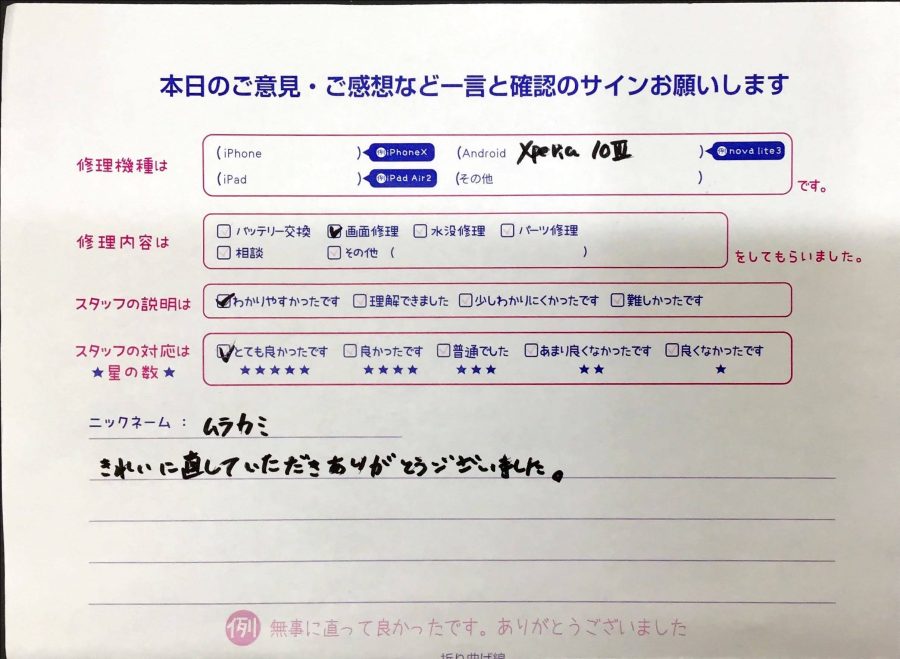 本日のご意見・ご感想など一言と確認のサインお願いします
修理機種は
(iPhone ) 例iPhoneX (Android Xperia 10Ⅲ ) 例nova lite3
(iPad ) 例iPad Air2 (その他 )
です。
修理内容は
バッテリー交換 画面修理 水没修理 パーツ修理
相談 その他 ( )
をしてもらいました。
スタッフの説明は わかりやすかったです 理解できました 少しわかりにくかったです 難しかったです
スタッフの対応は とても良かったです 良かったです 普通でした あまり良くなかったです 良くなかったです
★星の数★ ★★★★★ ★★★★ ★★★ ★★ ★
ニックネーム : ムラカミ
きれいに直していただきありがとうございました。
例 無事に直って良かったです。ありがとうございました